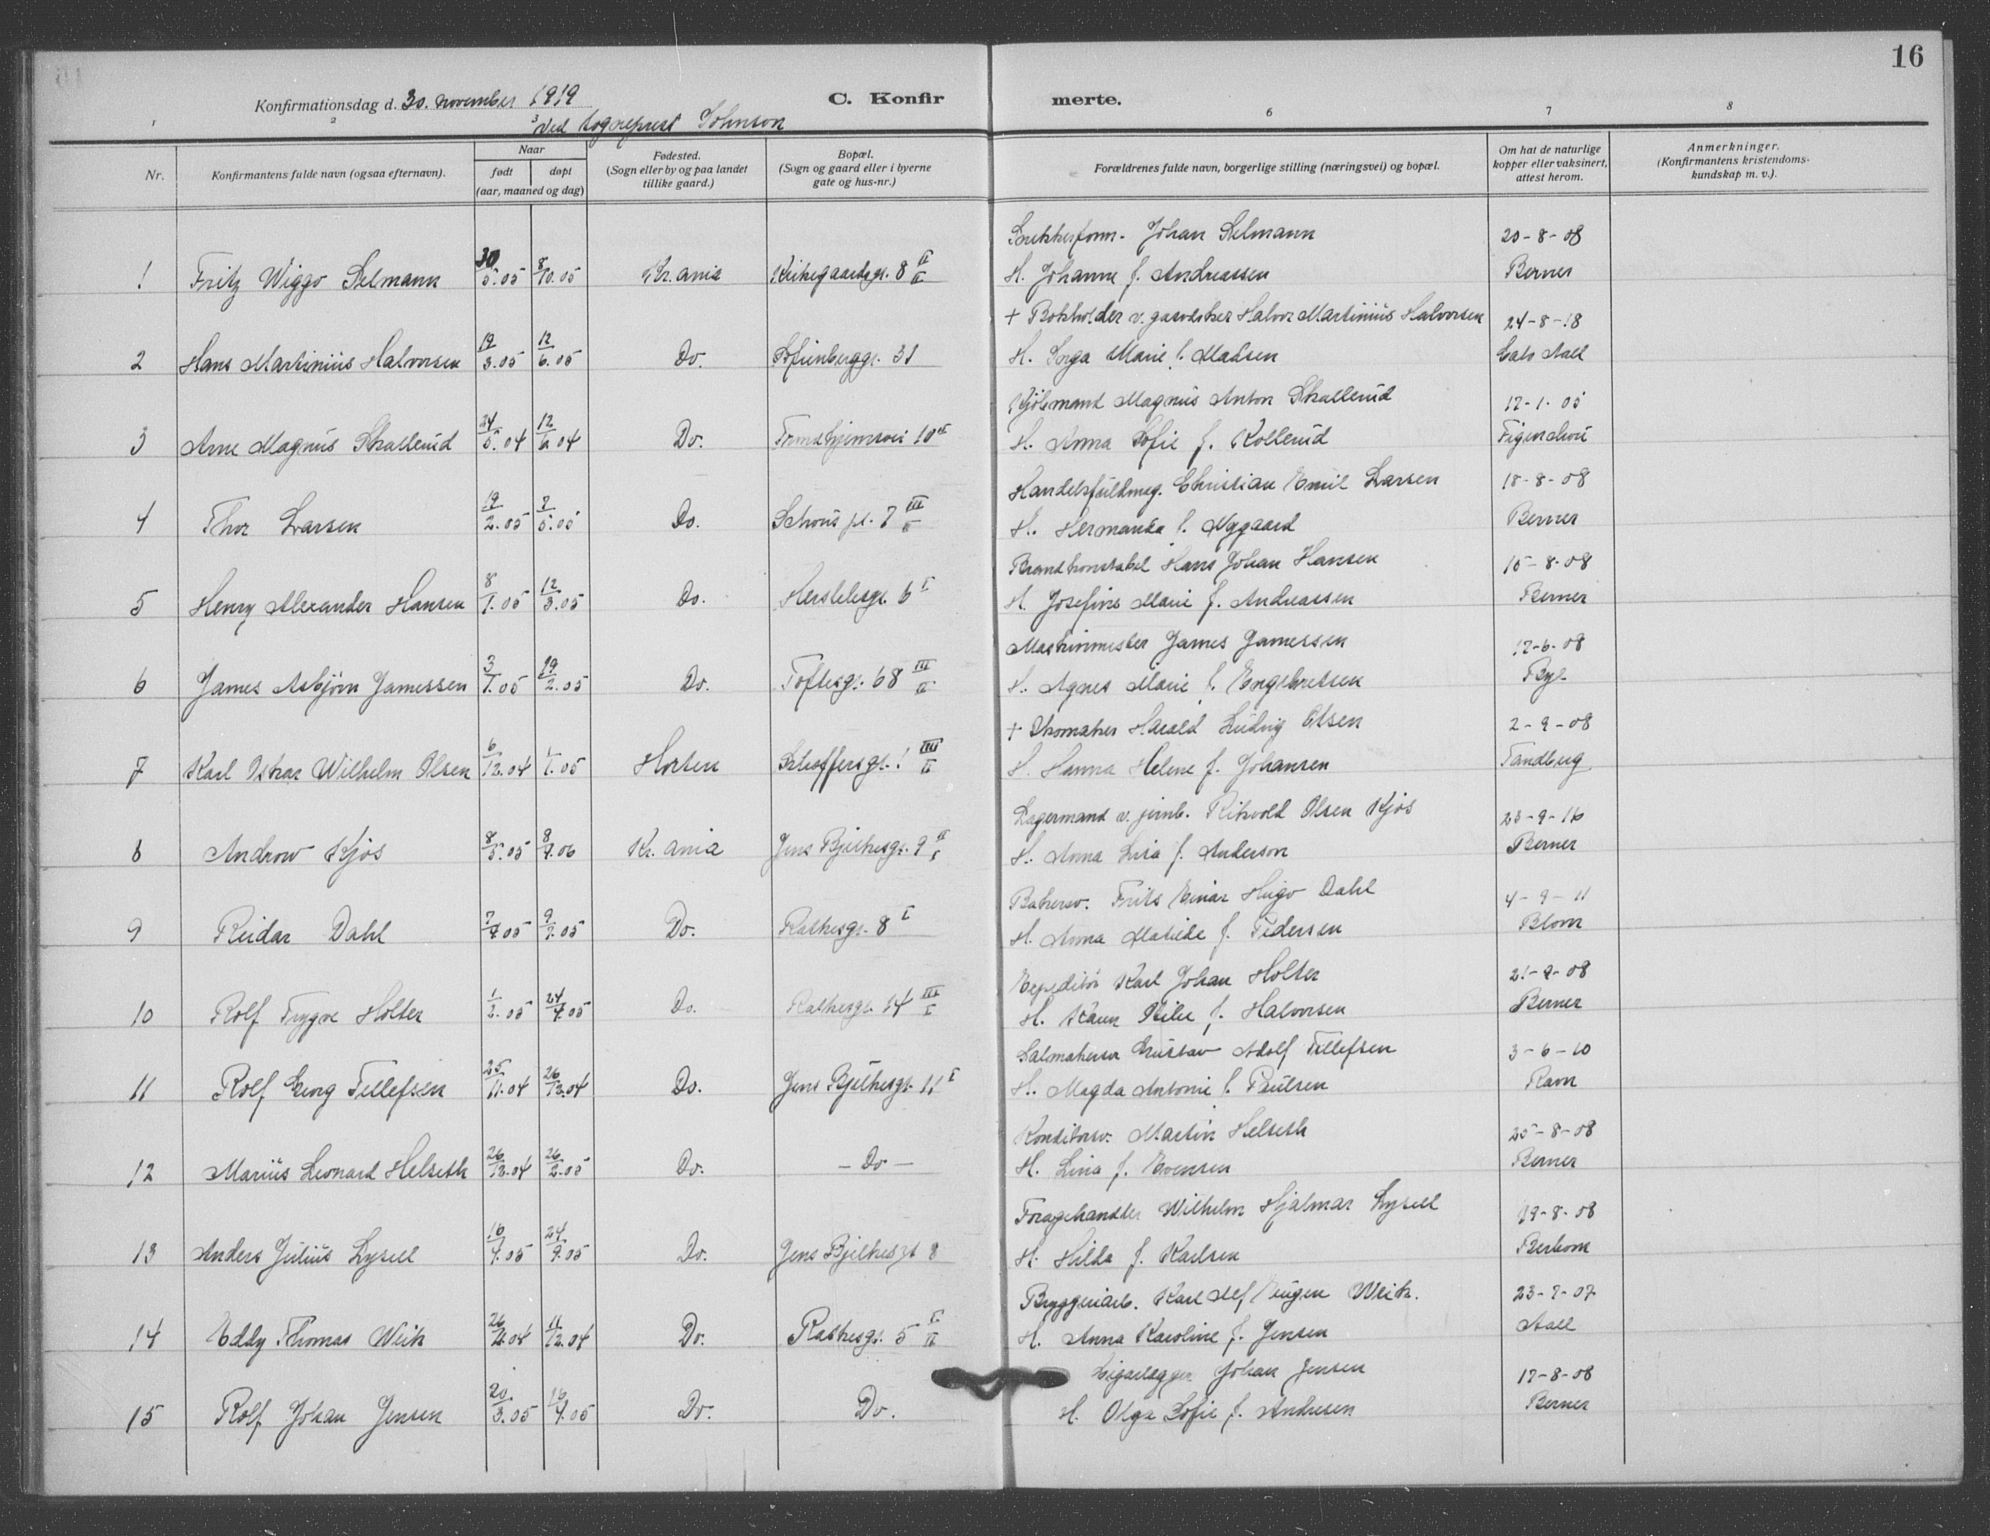 16
Konfirmationsdag d. 30. november 1919
C. Konfir merte.
ved sogneprest Johnson
1 2 3 6 7 8
Nr.
Konfirmantens fulde navn (ogsaa efternavn).
Naar
født døpt
(aar, maaned og dag)
Fødested.
(Sogn eller by og paa landet
tillike gaard.)
Bopæl.
(Sogn og gaard eller i byerne
gate og hus-nr.)
Forældrenes fulde navn, borgerlige stilling (næringsvei) og bopæl.
Om hat de naturlige
kopper eller vaksinert,
attest herom.
Anmerkninger.
(Konfirmantens kristendoms-
kundskap m. v.).
Snekkerform. Johan Selmann 20-8-08
1 Fritz Wiggo Selmann 30/5.05 8/10.05 Kr.ania Kirkegaardsgt. 8 II/II H. Johanne f. Andreassen Berner
+ Bokholder v. gasverket Halvor Martinius Halvorsen 24-8-18
2 Hans Martinius Halvorsen 19/3.05 12/6.05 Do. Sofienberggt. 31 H. Inga Marie f. Madsen Cato Aall
Kjølmand Magnus Anton Skallerud 12-1-05
3 Arne Magnus Skallerud 24/5.04 12/6.04 Do. Trondhjemsvei 10 H. Anna Sofie f. Kollerud Figenschou
Handelsfuldmæg. Christian Emil Larsen 18-8-08
4 Thor Larsen 19/2.05 7/5.05 Do. Schous pl. 7 III H. Hermanda f. Nygaard Berner
Brandkonstabel Hans Johan Hansen 15-8-08
5 Henry Alexander Hansen 8/1.05 12/3.05 Do. Herslebsgt. 6 I H. Josefine Marie f. Andreassen Berner
Maskinmester James Jamessen 12-6-08
6 James Asbjørn Jamessen 3/1.05 19/2.05 Do. Toftesgt. 68 III/II H. Agnes Marie f. Engebretsen
+ Skomaker Harald Ludvig Olsen 2-9-08
7 Karl Oskar Wilhelm Olsen 6/12.04 1/1.05 Horten Schaffersgt. 1 III/II H. Hanna Helene f. Johansen Tandberg
Lagermand v. jernb. Rikvold Olsen Kjøs 23-9-16
8 Andrew Kjøs 8/5.05 8/4.06 Kr.ania Jens Bjelkesgt. 9 H. Anna Lisa f. Anderson Berner
Bakersv. Frits Einar Hugo Dahl 4-9-11
9 Reidar Dahl 7/4.05 9/7.05 Do. Rathkesgt. 8 I H. Anna Matilde f. Pedersen Blom
Expeditør Karl Johan Holter 21-9-08
10 Rolf Trygve Holter 1/2.05 24/4.05 Do. Rathkesgt. 14 III/I H. Karen f. Halvorsen Berner
Salmakersv. Gustav Adolf Tellefsen 3-6-10
11 Rolf Georg Tellefsen 25/11.04 26/12.04 Do. Jens Bjelkesgt. 11 I H. Magda Antonie f. Paulsen Ravn
Konditorsv. Martin Helseth 25-8-08
12 Marius Leonard Helseth 26/12.04 26/2.05 Do. – Do – H. Lina f. Evensen Berner
Foragehandler Wilhelm Hjalmar Lysell 19-8-08
13 Anders Julius Lysell 16/7.05 24/9.05 Do. Jens Bjelkesgt 8 H. Hilda f. Karlsen
Bryggeriarb. Karl Alf Eugen Weik. 23-7-07
14 Eddy Thomas Weik 26/4.04 11/12.04 Do. Rathkesgt. 5 I/II H. Anna Karoline f. Jensen Aall
Johan Jensen 17-8-08
15 Rolf Johan Jensen 20/3.05 16/4.05 Do. Do. H. Olga Sofie f. Andresen Berner